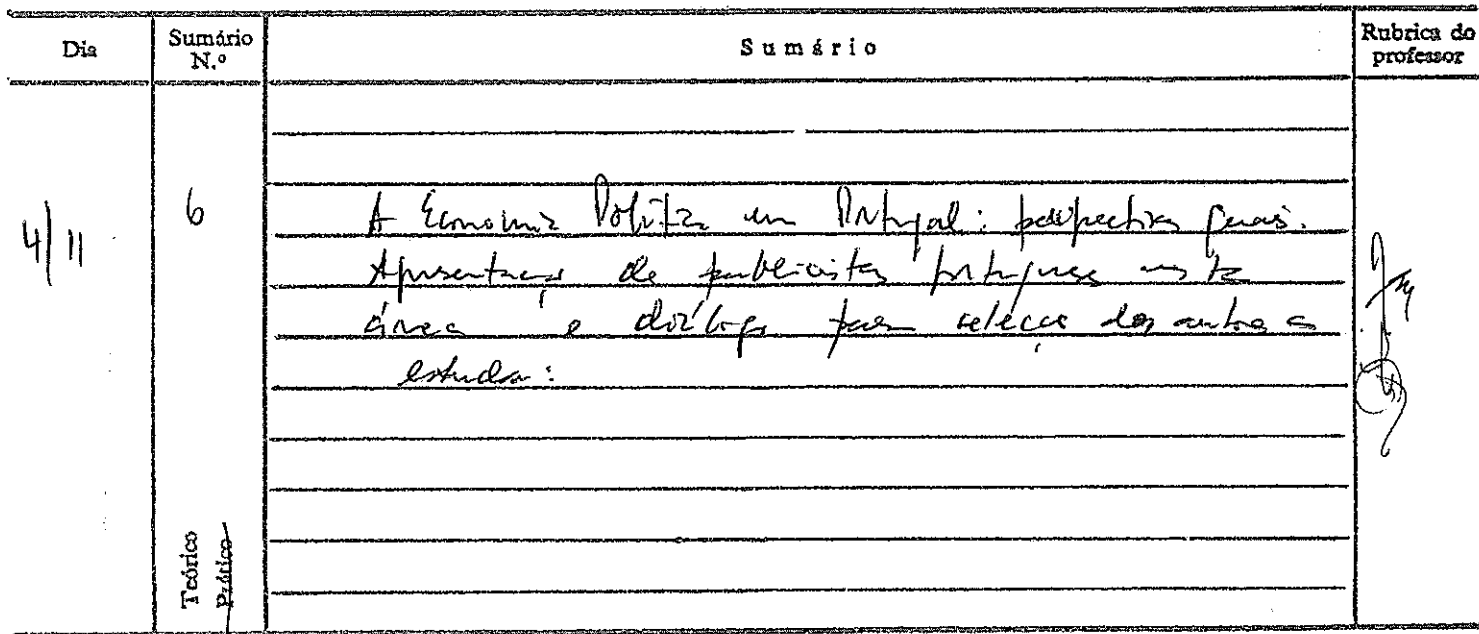 Dia
Sumário N.º
Sumário
Rubrica do professor
4/11
6
A Economia Política em Portugal: perspectivas gerais.
Apresentação de publicistas portugueses nesta
área e diálogo para selecção dos autores a
estudar:
Teórico
Prático